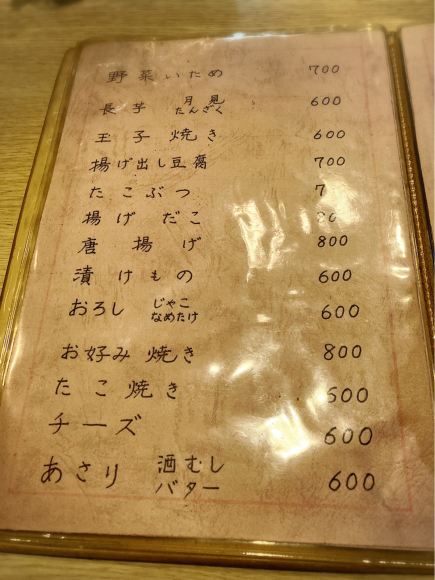 野菜いため 700
長芋 月見 たんざく 600
玉子焼き 600
揚げ出し豆腐 700
たこぶつ
揚げだこ
唐揚げ 800
漬けもの 600
おろし じゃこ なめたけ 600
お好み焼き 800
たこ焼き 600
チーズ 600
あさり 酒むし バター 600